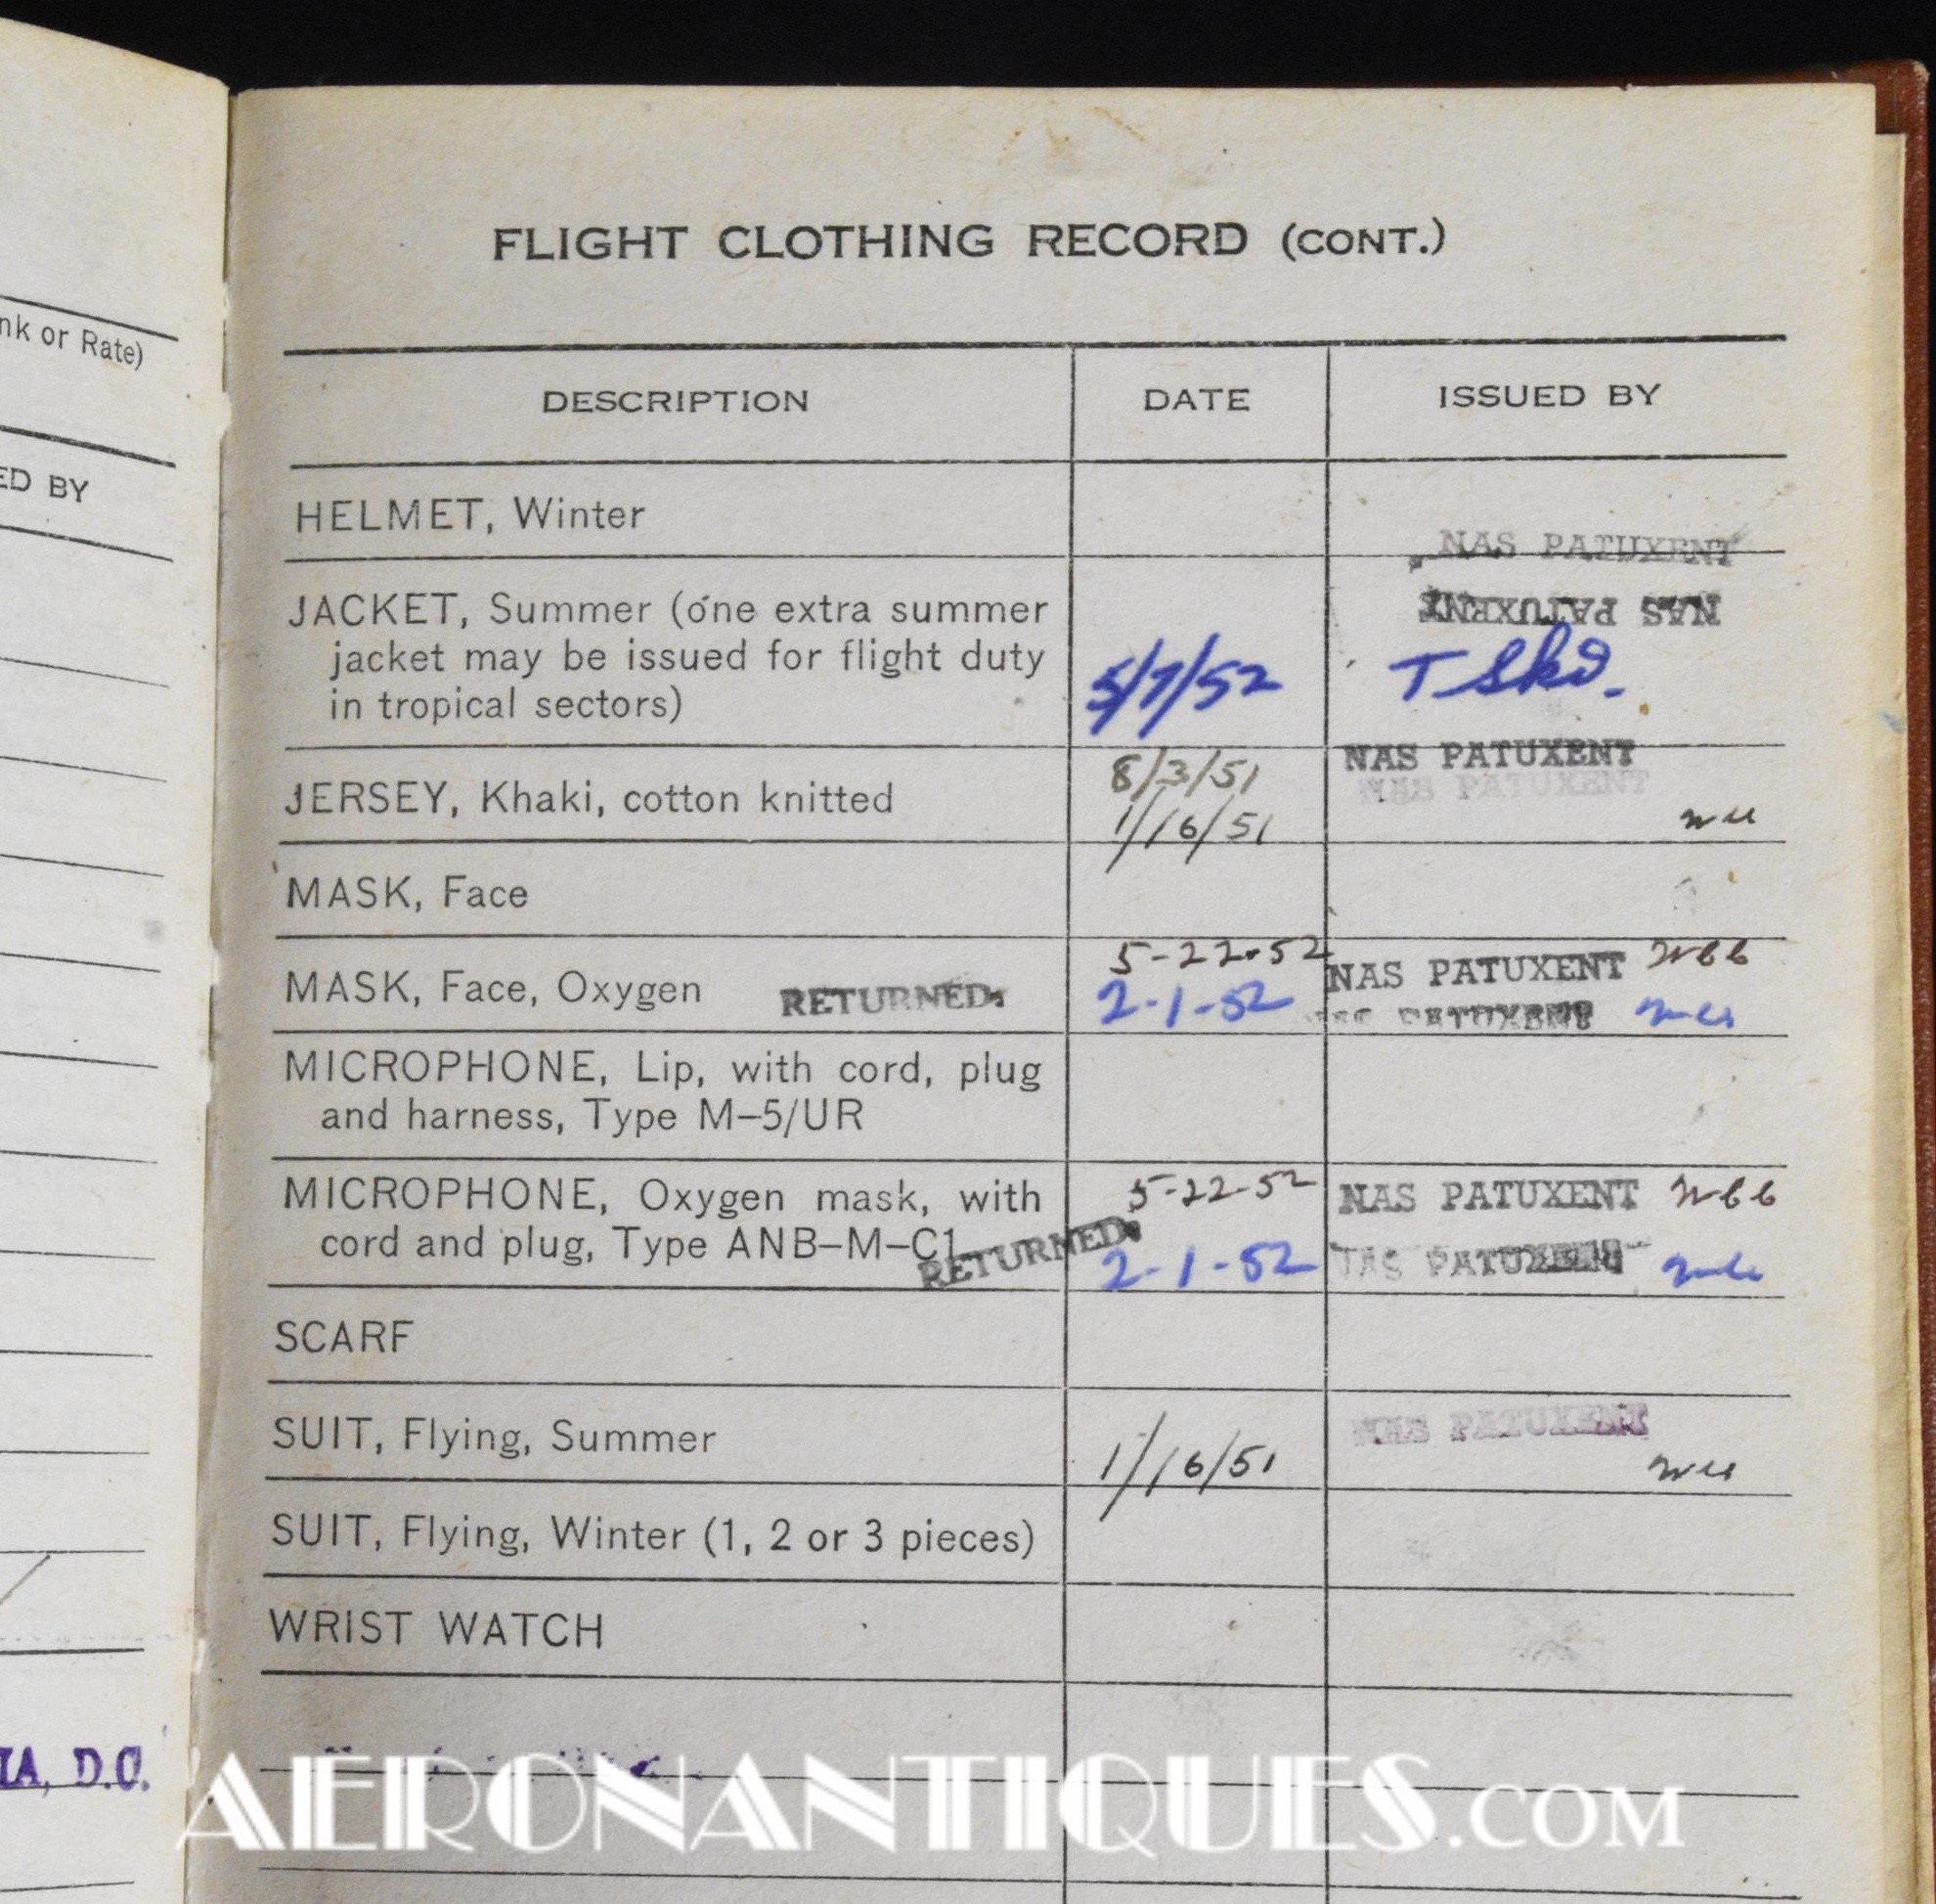 nk or Rate)
ED BY
IA, D.C.
FLIGHT CLOTHING RECORD (CONT.)
DESCRIPTION DATE ISSUED BY
HELMET, Winter
NAS PATUXENT
JACKET, Summer (one extra summer NAS PATUXENT
jacket may be issued for flight duty
in tropical sectors) 5/7/52
8/3/51 NAS PATUXENT
JERSEY, Khaki, cotton knitted NAS PATUXENT
1/16/51
MASK, Face
5-22-52 NAS PATUXENT
MASK, Face, Oxygen RETURNED. 2-1-52 NAS PATUXENT
MICROPHONE, Lip, with cord, plug
and harness, Type M-5/UR
MICROPHONE, Oxygen mask, with 5-22-52 NAS PATUXENT
cord and plug, Type ANB-M-C1 RETURNED. 2-1-52 NAS PATUXENT
SCARF
SUIT, Flying, Summer NAS PATUXENT
1/16/51
SUIT, Flying, Winter (1, 2 or 3 pieces)
WRIST WATCH
AERONANTIQUES.COM